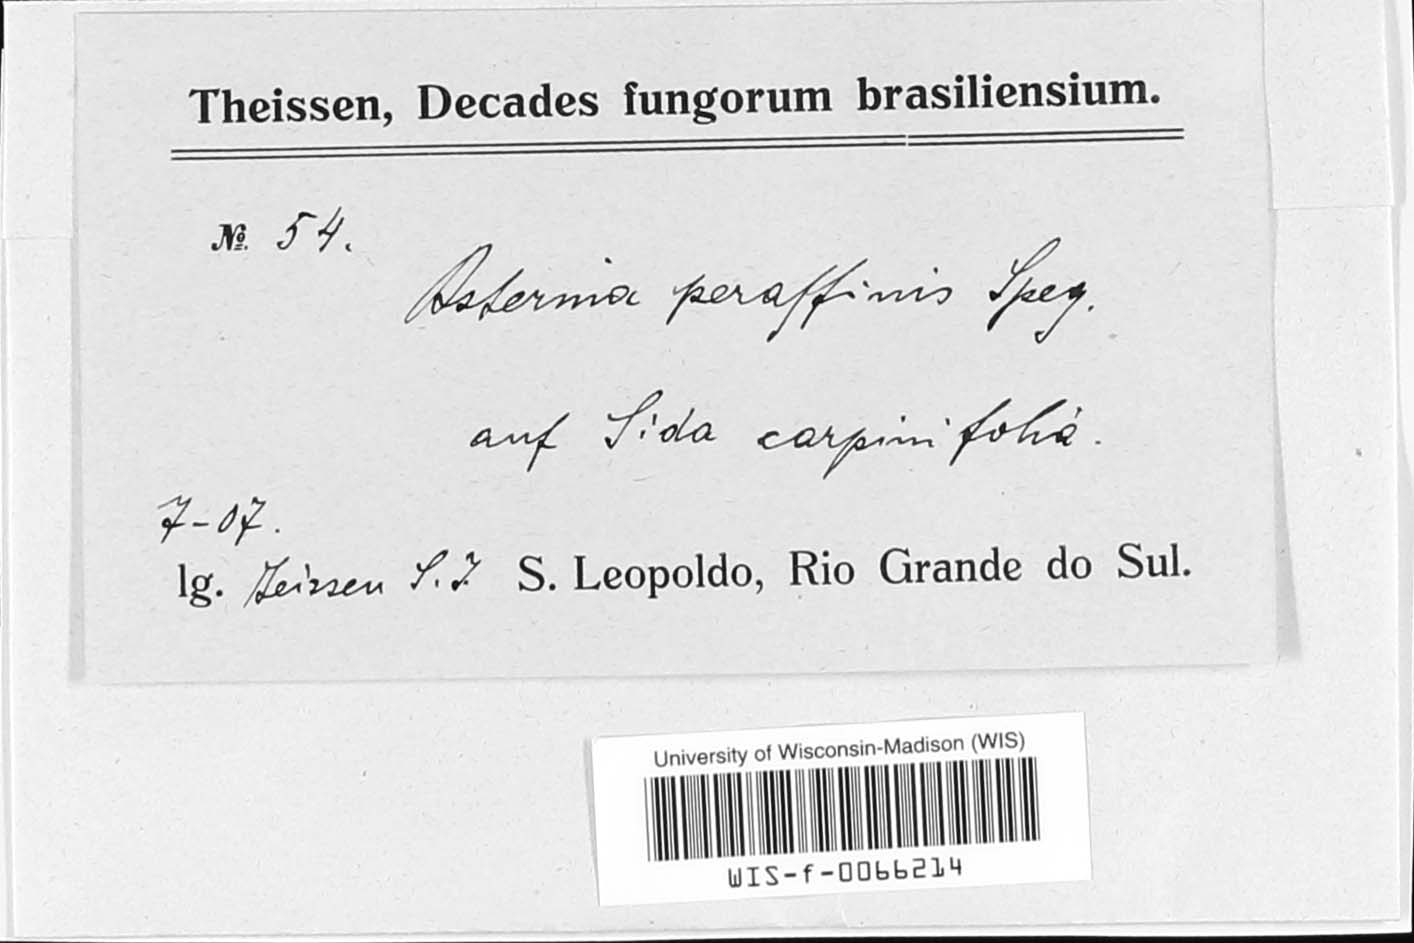 Theissen, Decades fungorum brasiliensium.
№ 54.
Asterina peraffinis Speg.
auf Sida carpinifolia.
7-07.
lg. Theissen S. J. S. Leopoldo, Rio Grande do Sul.
University of Wisconsin-Madison (WIS)
WIS-f-0066214